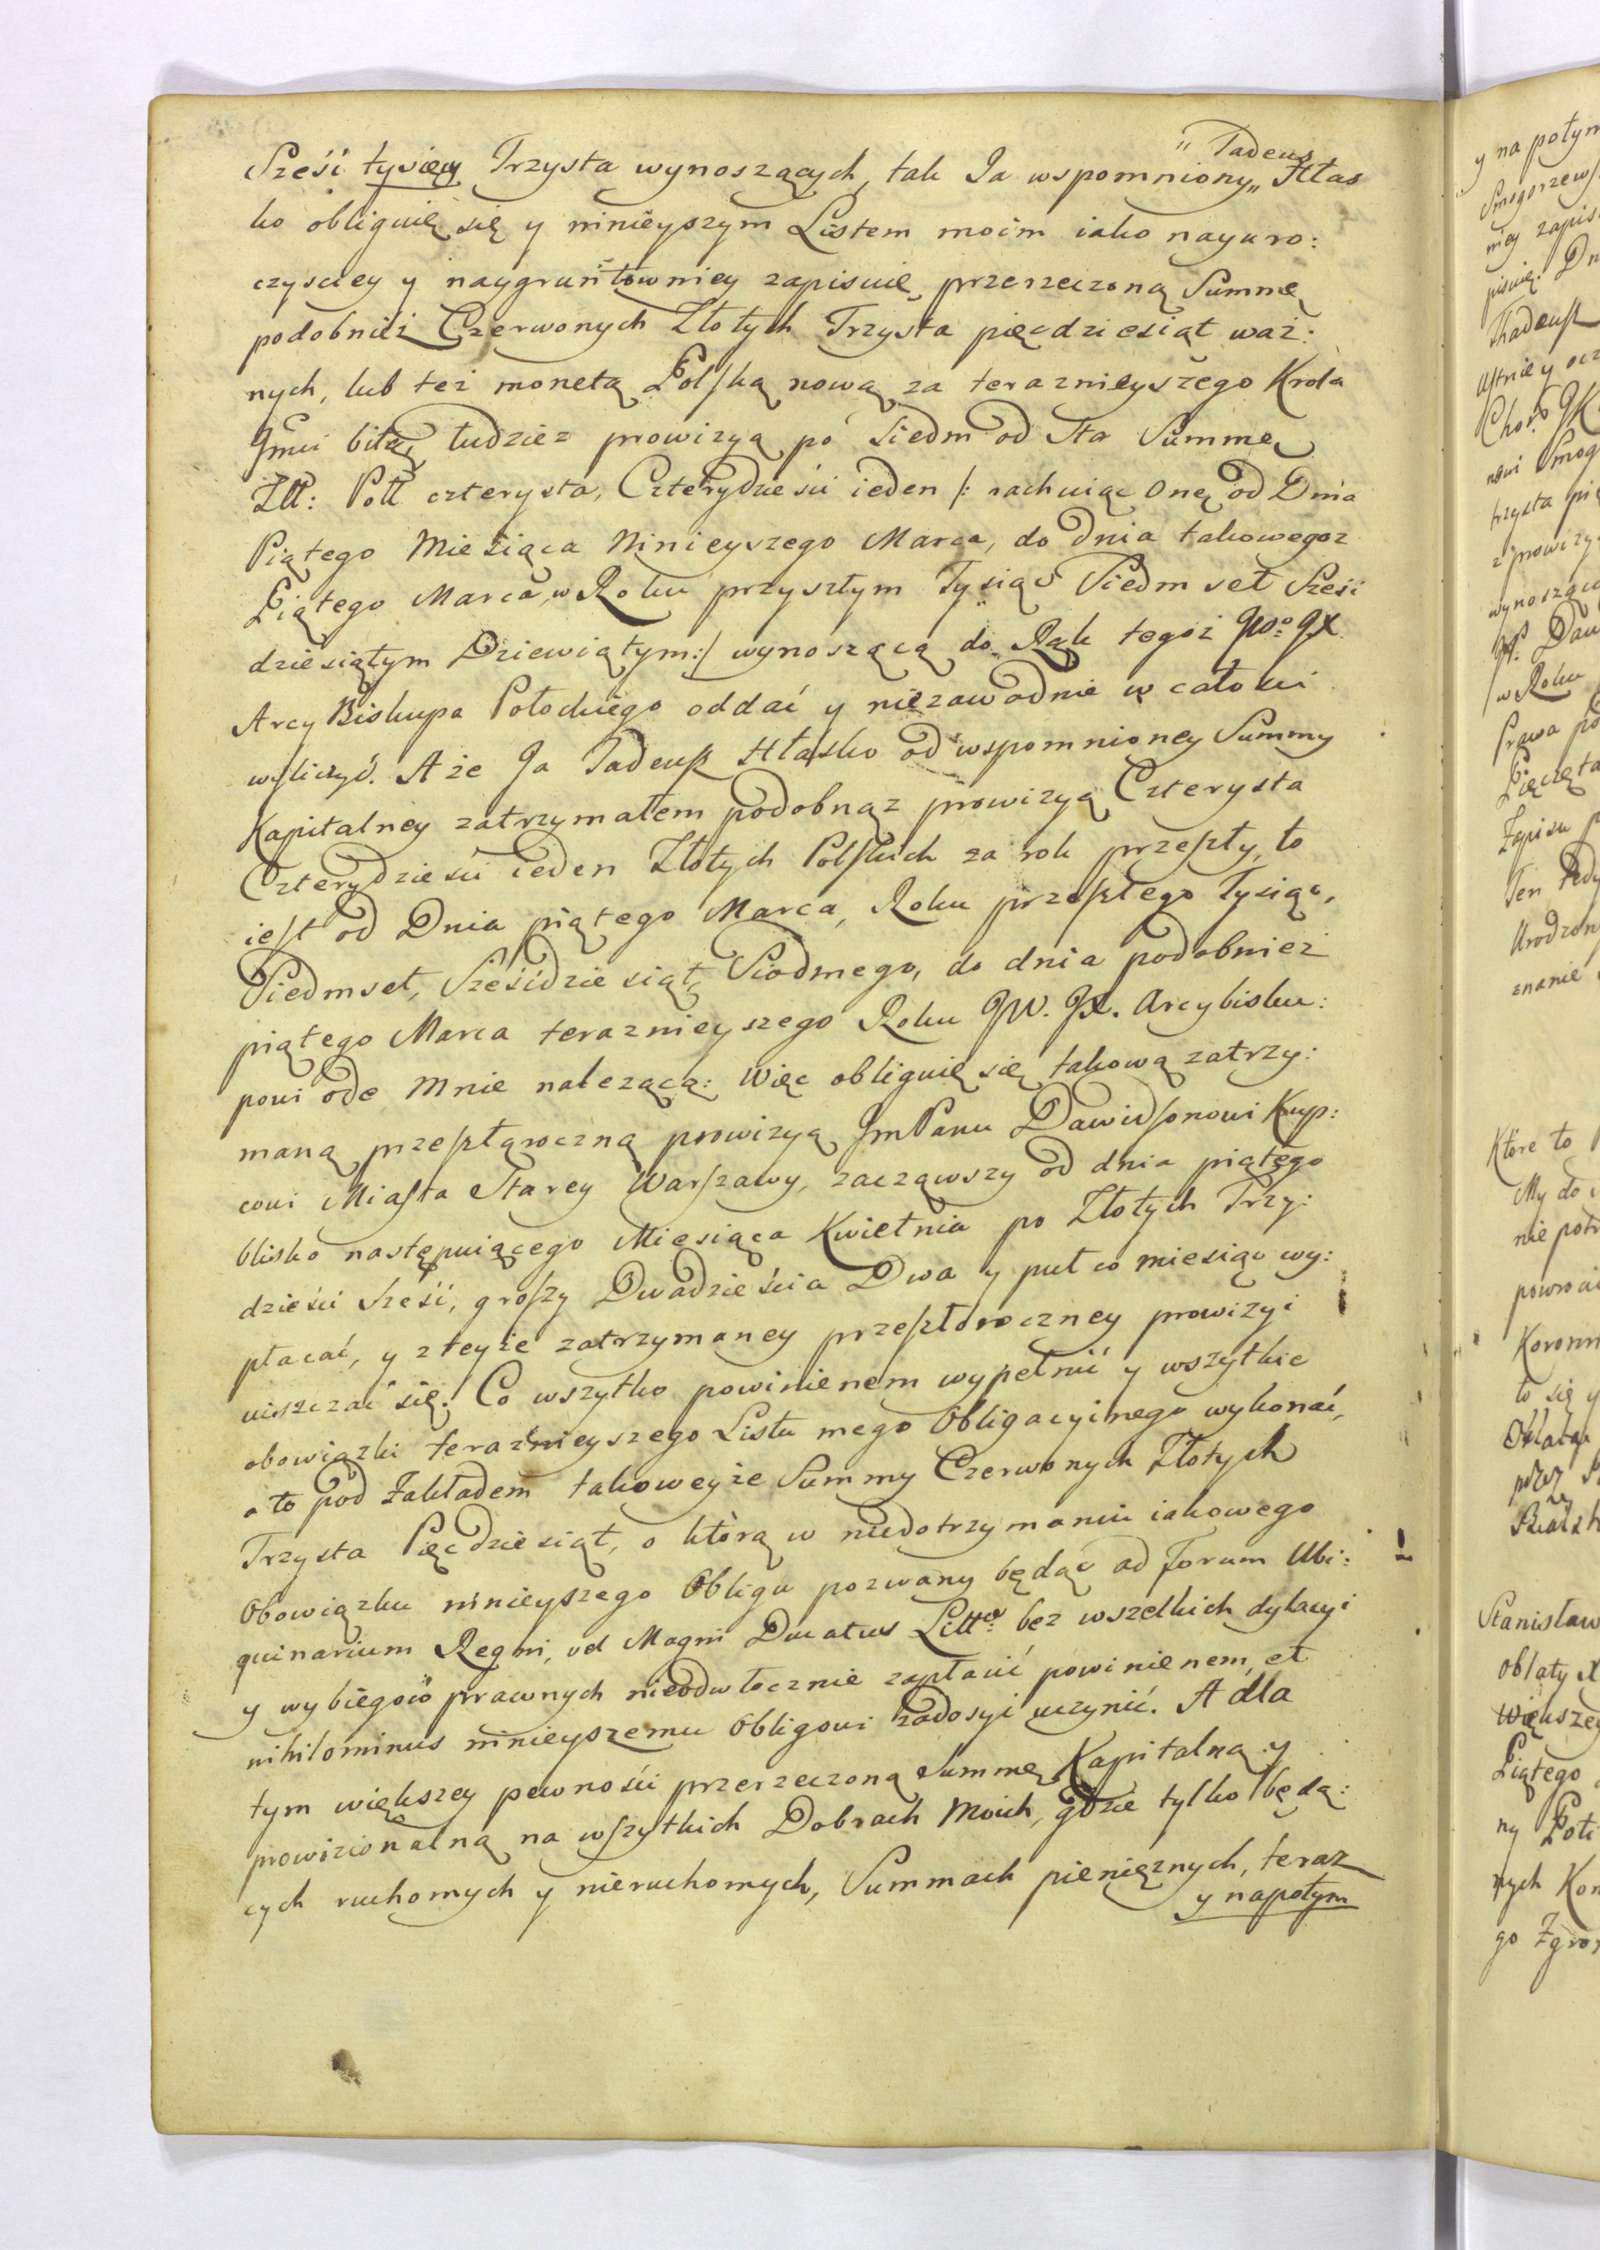 Sześć tysięcy Trzysta wynoszących, tak Ja wspomniony „ Tadeusz „ Hłas
ko obliguię się y ninieyszym Listem moim iako nayuro:
czysciey y naygruntowniey zapisuię przerzeczoną Summę
podobnież Czerwonych Złotych Trzysta pięcdziesiąt waż:
nych, lub też monetą Polską nową za teraznieyszego Krola
Jmci bitą, tudziez prowizyą po siedm od Sta Summę
Złł: Poll czterysta, Czterydzieści ieden /: rachuiąc onę od Dnia
Piątego Miesiąca Ninieyszego Marca, do Dnia takowegoz
Piątego Marca, w Roku przyszłym Tysiąc Siedm set Sześć
dziesiątym Dziewiątym:/ wynoszącą do Rąk tegoż JWo JX
Arcy Biskupa Połockiego oddać y niezawodnie w całości
wyliczyć. A że Ja Tadeusz Hłasko od wspomnioney Summy
Kapitalney zatrzymałem podobnąz prowizyą Czterysta
Czterydzieści ieden Złotych Polskich za rok przeszły, to
iest od Dnia piątego Marca, Roku przeszłego Tysiąc,
Siedmset, Sześćdziesiąt, Siodmego, do dnia podobnież
piątego Marca teraznieyszego Roku JW. JX. Arcybisku:
powi ode Mnie należącą: Więc obliguię się takową zatrzy:
maną przeszłąroczną prowizyą JmPanu Dawidsonowi Kup:
cowi Miasta Starey Warszawy, zacząwszy od dnia piątego
blisko następuiącego Miesiąca Kwietnia po Złotych Trzy:
dzieści Sześć, groszy Dwadzieścia Dwa y puł co miesiąc wy:
płacać, y z teyże zatrzymaney przeszłoroczney prowizyi
uiszczać się. Co wszytko powinienem wypełnić y wszytkie
obowiązki teraznieyszego Listu mego Obligacyinego wykonać,
a to pod Zakładem takoweyże Summy Czerwonych Złotych
Trzysta Pięcdziesiąt, o którą w niedotrzymaniu iakowego
Obowiązku ninieyszego Obligu pozwany będąc ad forum Ubi:
quinarium Regni, vel Magni Ducatus Litt: bez wszelkich dylacyi
y wybiegow prawnych nieodwłocznie zapłacić powinienem, et
nihilominus ninieyszemu Obligowi zadosyć uczynić. A dla
tym większey pewności przerzeczoną Summę Kapitalną y
prowizionalną na wszytkich Dobrach Moich, gdzie tylko będą:
cych ruchomych y nieruchomych, Summach pieniężnych, teraz
y napotym
y na potym
Smogorzews
niey zapis
pisuię. Dn
Thadeusz
nowi Smog
trzysta pię
z prowizy
wynosząc
JP. Daw
/w Roku
Prawa po
Pieczęta
Zapisu p
Ten tedy
Urodzon
znanie
Które to
My do
nie potr
powroci
Koronn
to się y
Oblatę
przez
Stanisław
Oblaty
Większey
Piątego
ny
nych Kor
go Zgrom